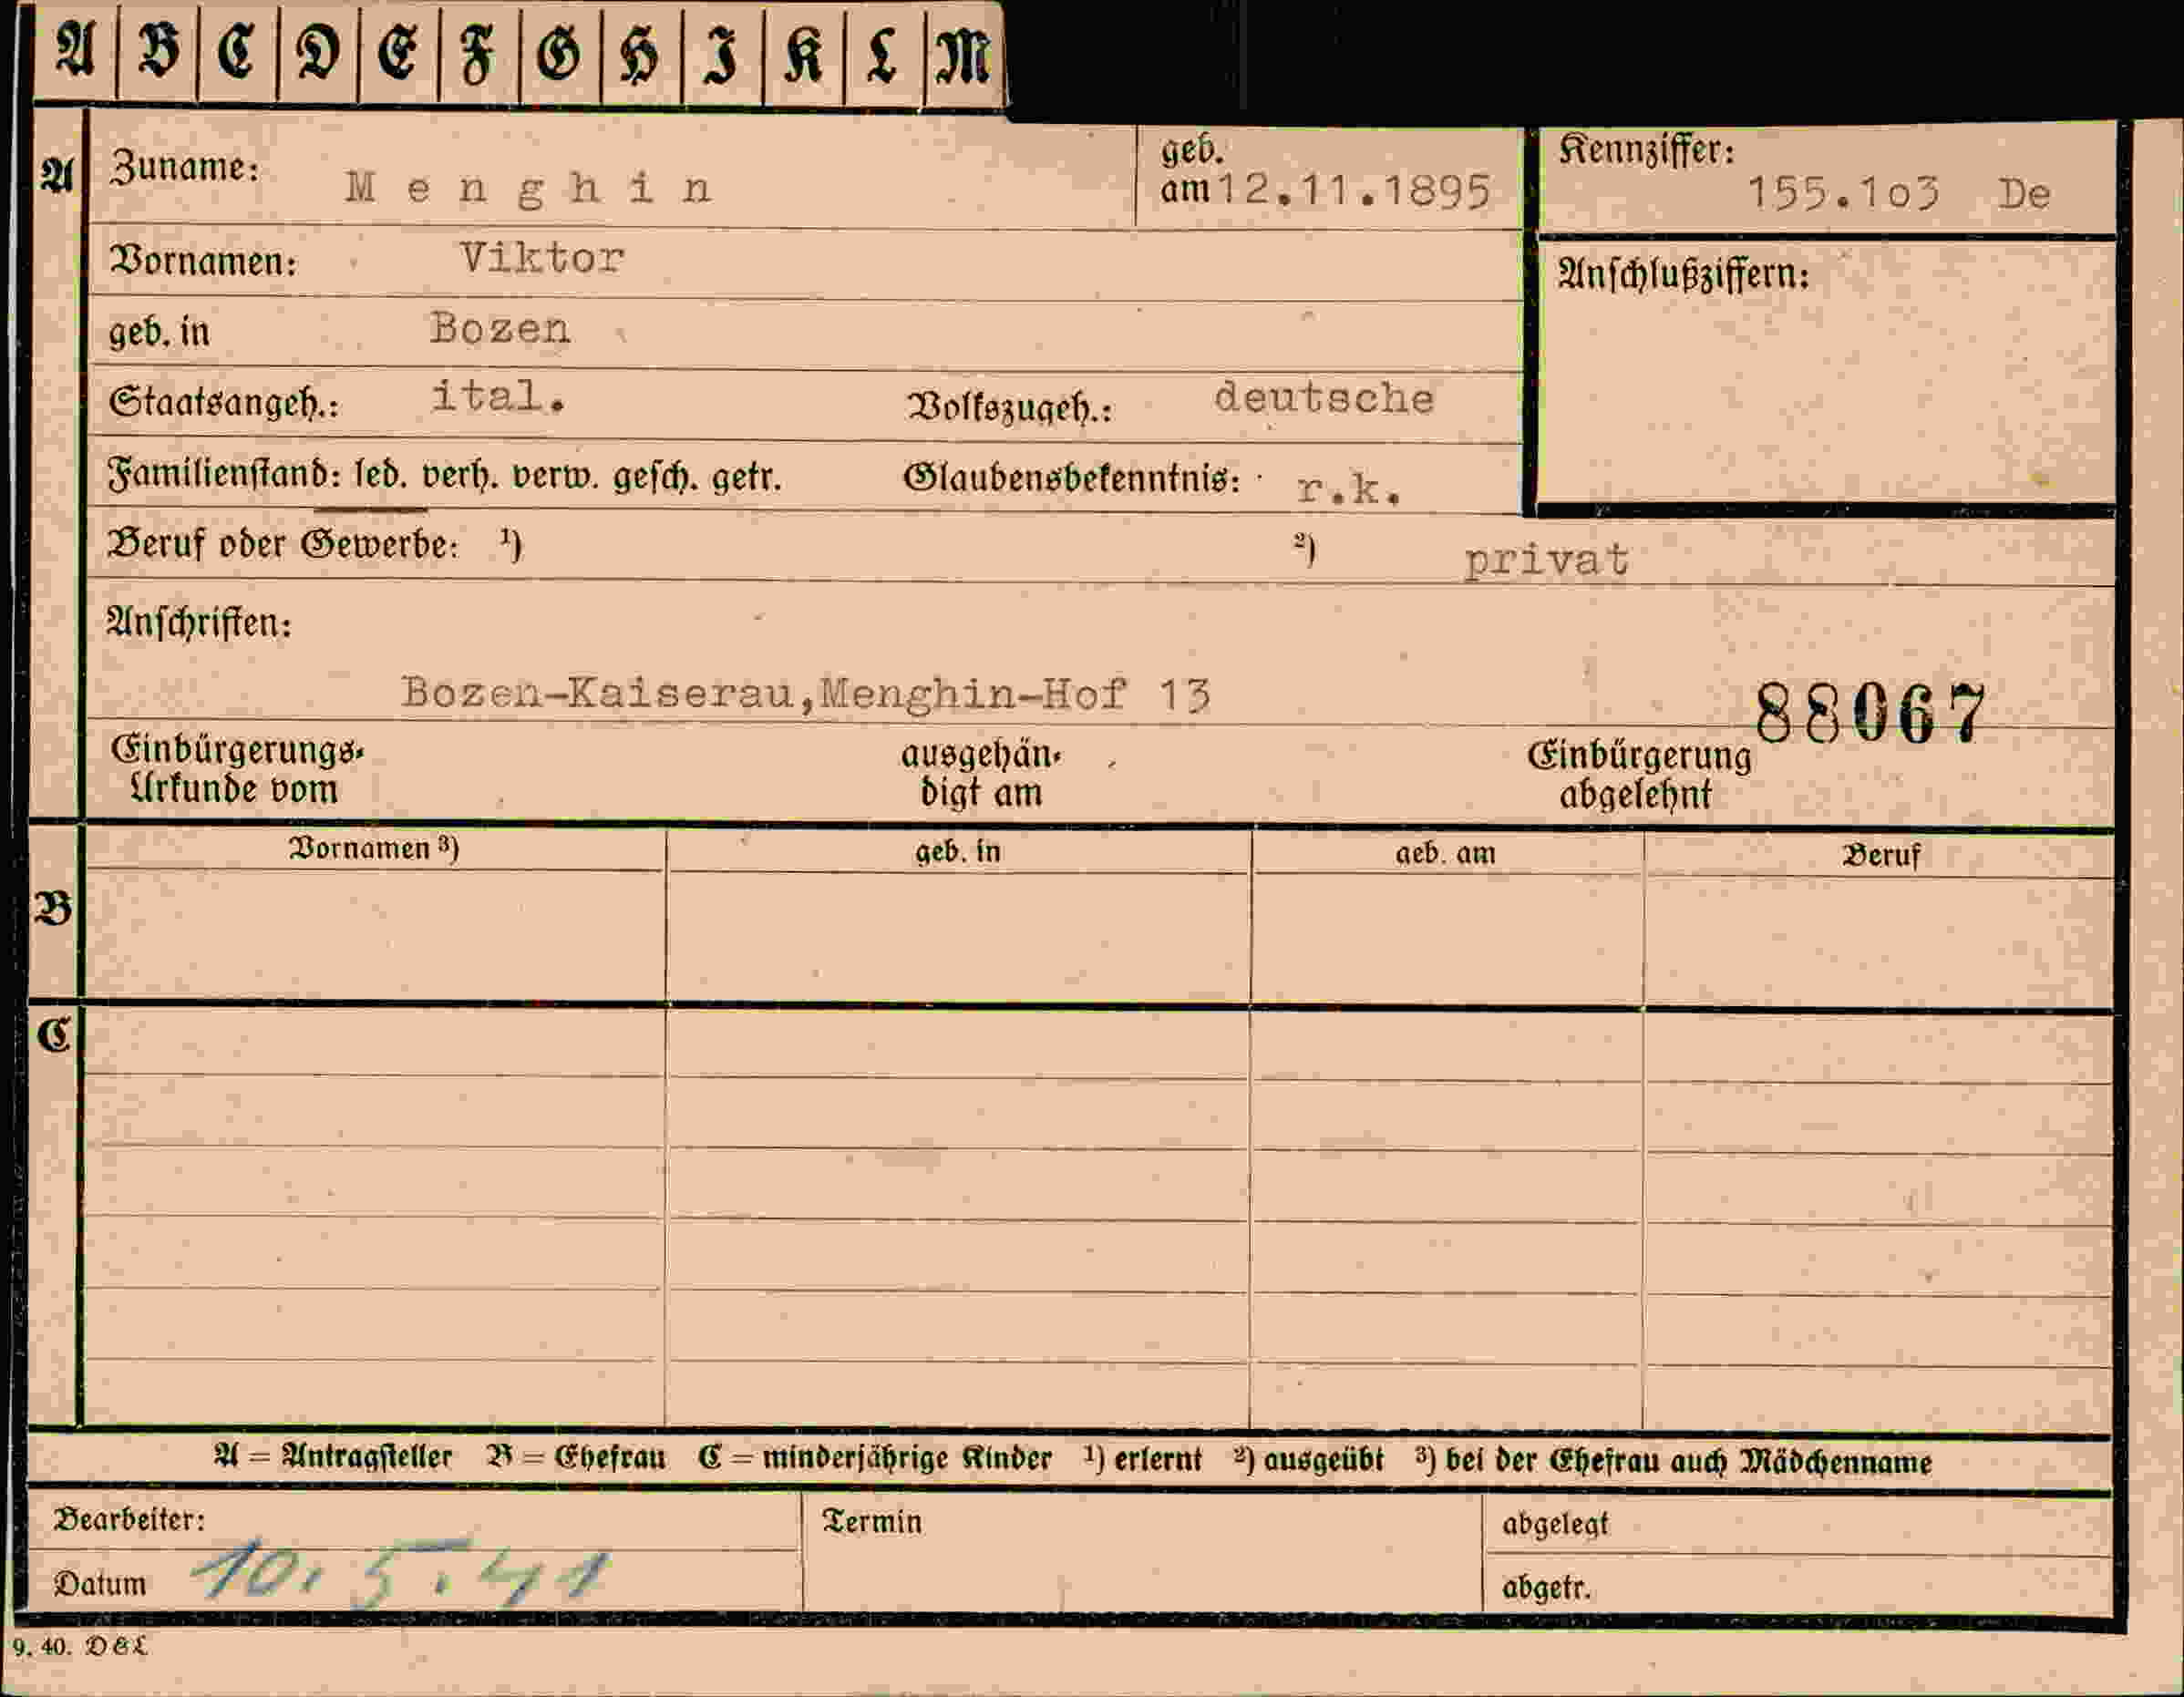 A B C D E F G H I K L M
A Zuname: Menghin geb. am 12.11.1895 Kennziffer: 155.1o3 De
Vornamen: Viktor Anschlußziffern:
geb. in Bozen
Staatsangeh.: ital. Volkszugeh.: deutsche
Familienstand: led. verh. verw. gesch. getr. Glaubensbekenntnis: r.k.
Beruf oder Gewerbe: ¹) ²) privat
Anschriften:
Bozen-Kaiserau,Menghin-Hof 13
88067
Einbürgerungs- ausgehän- Einbürgerung
Urkunde vom digt am abgelehnt
Vornamen ³) geb. in geb. am Beruf
B
C
A = Antragsteller B = Ehefrau C = minderjährige Kinder ¹) erlernt ²) ausgeübt ³) bei der Ehefrau auch Mädchenname
Bearbeiter: Termin abgelegt
Datum 10. 5. 41 abgetr.
9. 40. D & L